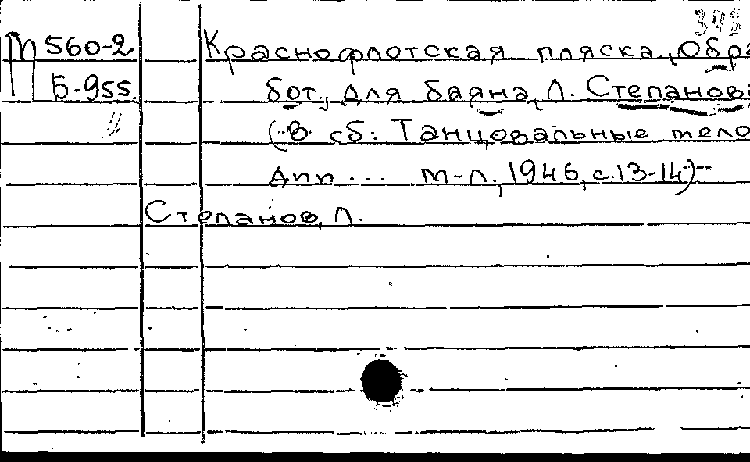 393
М 560-2 Краснофлотская пляска, Обра
Б-955 бот. для баяна, Л. Степанова
(В сб: Танцовальные мело
дии... М-Л., 1946, с.13-14)
Степанов, Л.